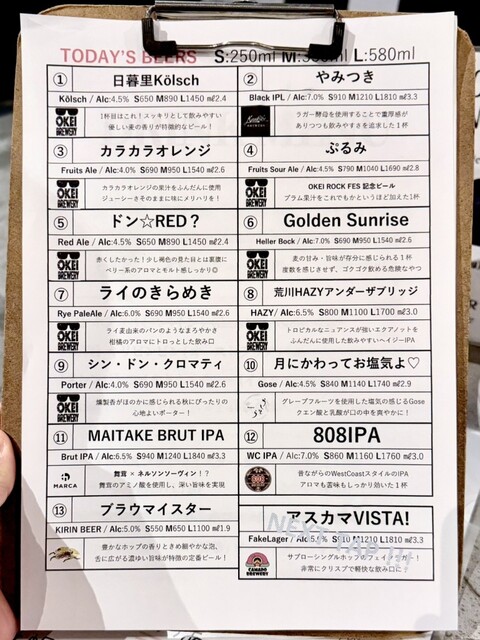 TODAY'S BEERS S:250ml M:350ml L:580ml
① 日暮里Kölsch
Kölsch / Alc:4.5% S650 M890 L1450 ㎖2.4
OKEI BREWERY
1杯目はこれ！スッキリとして飲みやすい
優しい麦の香りが特徴的なビール！
② やみつき
Black IPL / Alc:7.0% S910 M1210 L1810 ㎖3.3
ラガー酵母を使用することで重厚感が
ありつつも飲みやすさを追求した1杯
③ カラカラオレンジ
Fruits Ale / Alc:4.0% S690 M950 L1540 ㎖2.6
OKEI BREWERY
カラカラオレンジの果汁をふんだんに使用
ジューシーさそのままに味にメリハリを！
④ ぷるみ
Fruits Sour Ale / Alc:4.5% S790 M1040 L1690 ㎖2.8
OKEI BREWERY
OKEI ROCK FES 記念ビール
プラム果汁をこれでもかというほど加えた1杯
⑤ ドン☆RED？
Red Ale / Alc:4.5% S650 M890 L1450 ㎖2.4
OKEI BREWERY
赤くしたかった！少し褐色の見た目とは裏腹に
ベリー系のアロマとモルト感しっかり◎
⑥ Golden Sunrise
Heller Bock / Alc:7.0% S690 M950 L1540 ㎖2.6
OKEI BREWERY
麦の甘み・旨味が存分に感じられる1杯
度数を感じさせず、ゴクゴク飲める危険なやつ
⑦ ライのきらめき
Rye PaleAle / Alc:6.0% S690 M950 L1540 ㎖2.6
OKEI BREWERY
ライ麦由来のパンのようなまろやかさ
柑橘のアロマにトロッとした飲み口
⑧ 荒川HAZYアンダーザブリッジ
HAZY / Alc:6.5% S800 M1100 L1700 ㎖3.0
OKEI BREWERY
トロピカルなニュアンスが強いエクアノットを
ふんだんに使用した飲みやすいヘイジーIPA
⑨ シン・ドン・クロマティ
Porter / Alc:4.0% S690 M950 L1540 ㎖2.6
OKEI BREWERY
燻製香がほのかに感じられる秋にぴったりの
心地よいポーター！
⑩ 月にかわってお塩気よ♡
Gose / Alc:4.5% S840 M1140 L1740 ㎖2.9
グレープフルーツを使用した塩気の感じるGose
クエン酸と乳酸が口の中を爽やかに！
⑪ MAITAKE BRUT IPA
Brut IPA / Alc:6.5% S940 M1240 L1840 ㎖3.3
MARCA
舞茸 × ネルソンソーヴィン！？
舞茸のアミノ酸を使用し、深い旨味を実現
⑫ 808IPA
WC IPA / Alc:7.0% S860 M1160 L1760 ㎖3.0
昔ながらのWestCoastスタイルのIPA
アロマも苦味もしっかり効いた1杯
⑬ ブラウマイスター
KIRIN BEER / Alc:5.0% S550 M650 L1100 ㎖1.9
豊かなホップの香りときめ細やかな泡、
舌に広がる濃ゆい旨味が特徴の定番ビール！
アスカマVISTA!
NEXT TAP !!!
FakeLager / Alc:5.5% S910 M1210 L1810 ㎖3.3
CAMADO BREWERY
サブローシングルホップのフェイクラガー！
非常にクリスプで軽快な飲み口に？